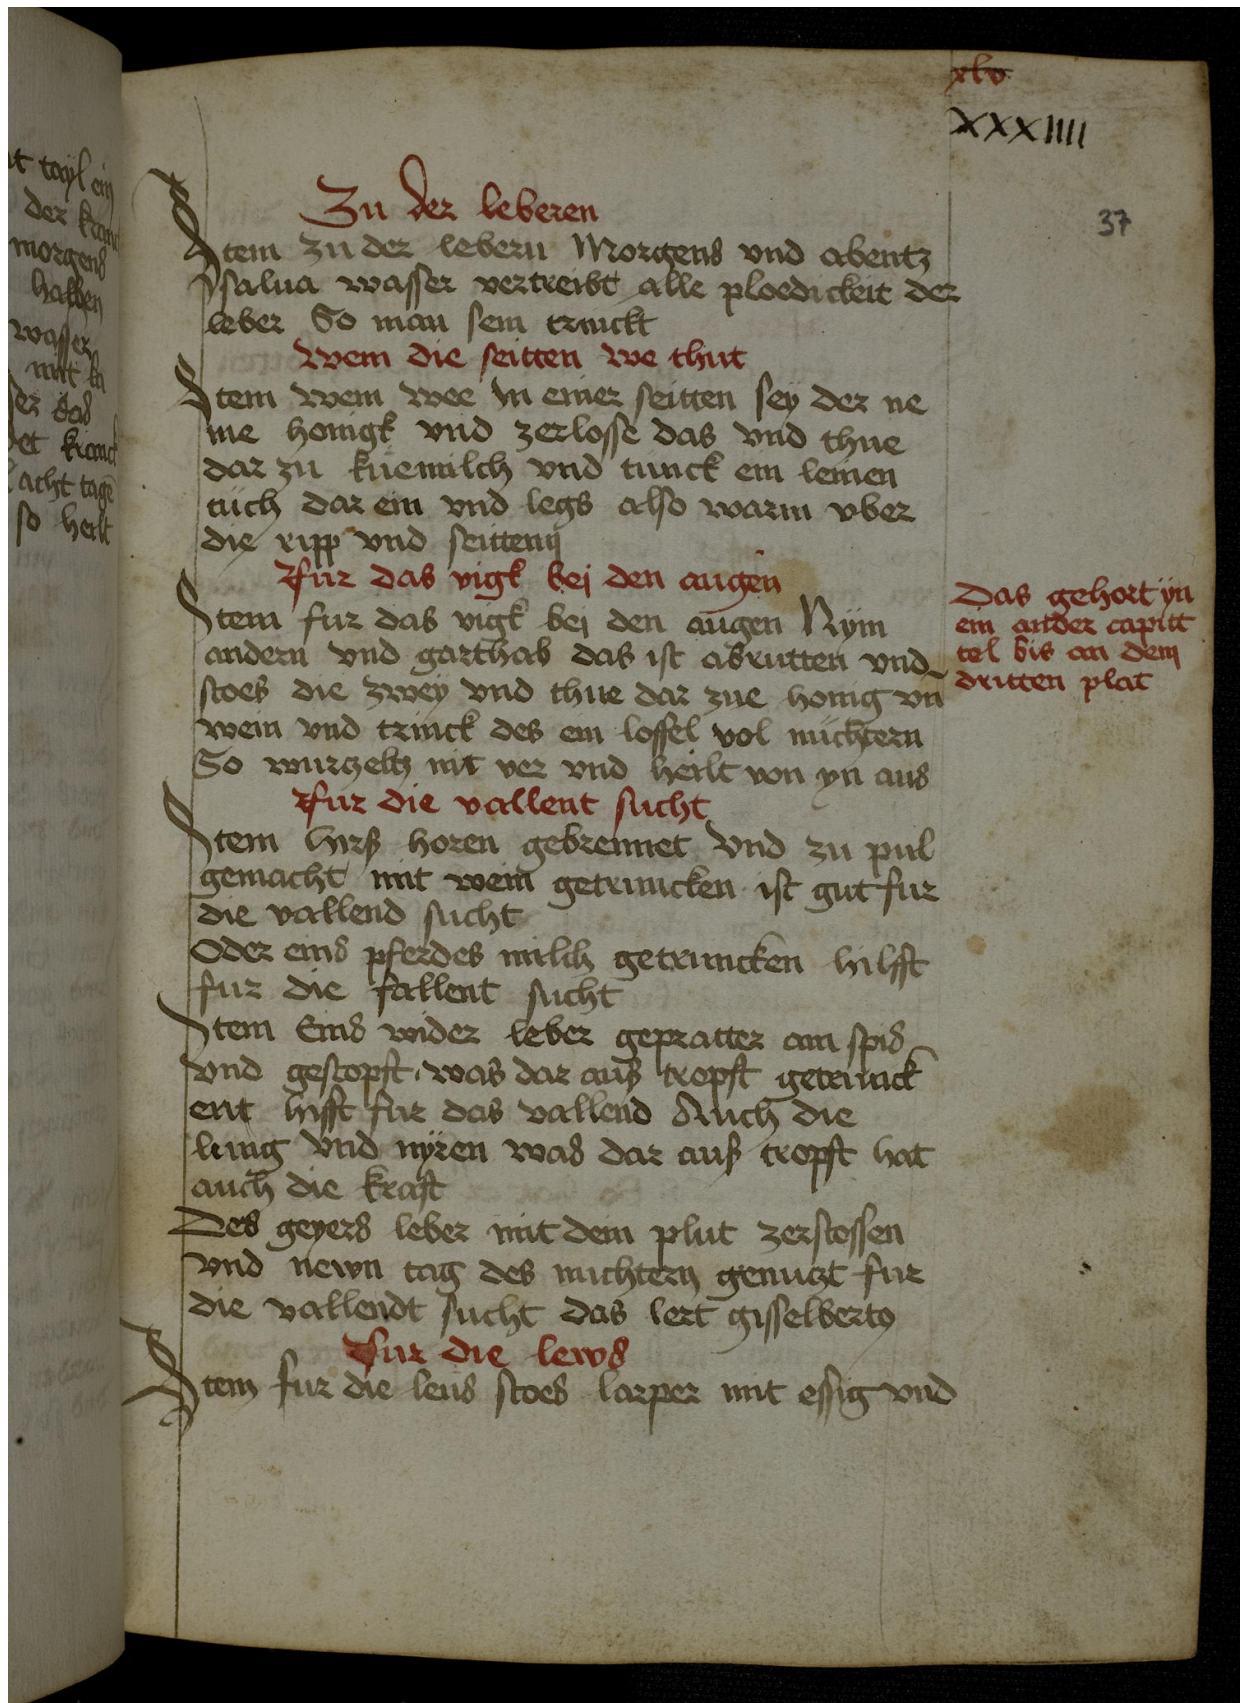 xlv
XXXIIII
37
t tayl ein
der kranc
morgens
halben
wasser
mit
ser das
et kranck
acht tage
so heilt
Zu der leberen
Item zu der lebern Morgens vnd abentz
salua wasser vertreibt alle ploedickeit der
leber So man sein trinckt
Wem die seitten we thut
Item wem wee In einer seitten sey der ne
me honigk vnd zerlosse das vnd thue
dar zu küemilch vnd tunck ein leinen
tuch dar ein vnd legs also warm vber
die ripp vnd seitten
Fur das vigk bej den augen
Item fur das vigk bej den augen Nym
andern vnd garthab das ist abrutten vnd
stoes die zwey vnd thue dar zue honig vn̄
wein vnd trinck des ein loffel vol nüchtern
So wurtzelts nit ver vnd heilt von yn aus
Das gehort yn
ein ander capitt
tel bis an dem
dritten plat
Fur die vallent sucht
Item hirß horen gebrennet vnd zu pul
gemacht mit wein getruncken ist gut fur
die vallend sucht
Oder eins pferdes milch getruncken hilfft
fur die fallent sucht
Item Eins wider leber gepratter am spis
vnd gestopft was dar auß tropft getrunck
ent hifft fur das vallend Auch die
lung vnd nyren was dar auß tropft hat
auch die kraft
Des geyers leber mit dem plut zerstossen
vnd newn tag des nuchtern genutzt fur
die vallendt sucht das lert gisselbertꝰ
Fur die lews
Item fur die leus stoes lorper mit essig vnd